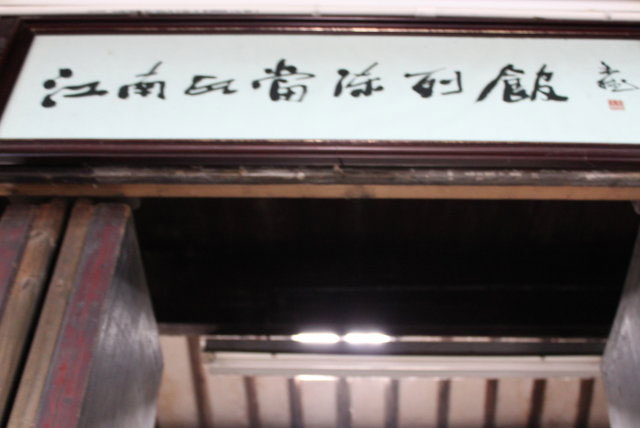 江南瓦當陳列館